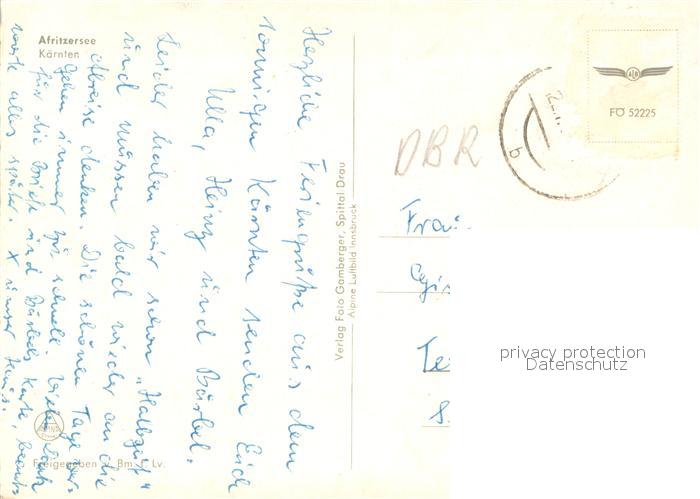 Afritzersee
Kärnten
Herzliche Feriengrüße aus dem
sonnigen Kärnten senden Euch
Ulla, Heinz und Bärbel.
Leider haben wir schon "Halbzeit"
und müssen bald wieder an die
Abreise denken. Die schönen Tage
gehen immer zu schnell. Vielen Dank
für die Briefe und Bärbels Karte,
alles später.
Verlag Foto Gamberger, Spittal Drau
Alpine Luftbild Innsbruck
Freigegeben v. Bm. f. Lv.
FO 52225
DBR
Frau
privacy protection
Datenschutz